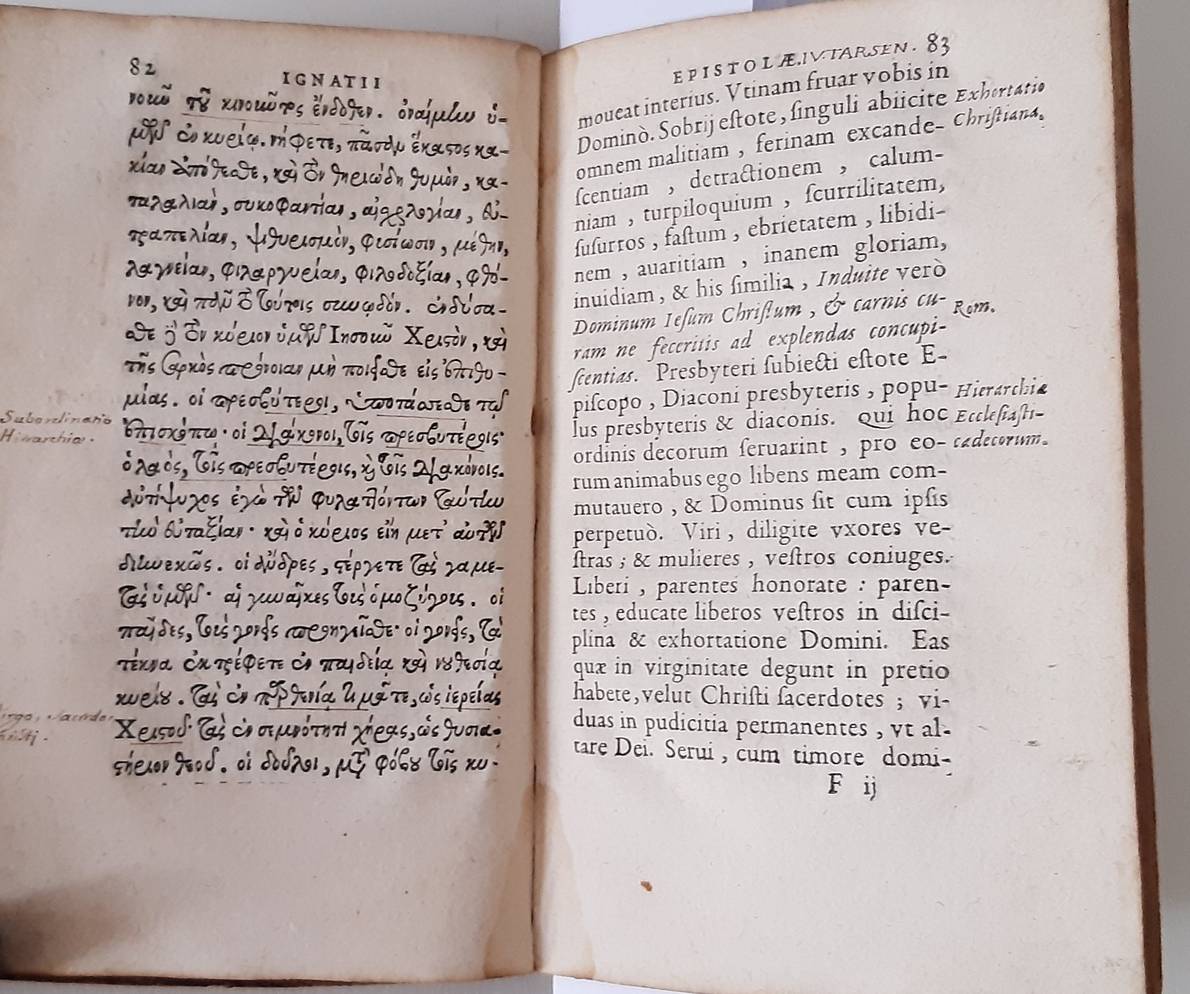 82
IGNATII
νοιω τῦ κινοιωτος ἔνδοθεν. ὀναίμλω ὑ-
μῶν ἐν κυρίῳ. νήφετε, πᾶσαν ἕκαστος κα-
κίαν ἀπόθεσθε, καὶ τὸν θηριώδη θυμὸν, κα-
ταλαλιὰν, συκοφαντίαν, αἰσχρολογίαν, εὐ-
τραπελίαν, ψιθυρισμὸν, φυσίωσιν, μέθην,
λαγνείαν, φιλαργυρίαν, φιλοδοξίαν, φθό-
νον, καὶ πᾶν τὸ τούτοις συνῳδόν. ἐνδύσα-
σθε δὲ τὸν κύριον ὑμῶν Ἰησοῦν Χριστὸν, καὶ
τῆς σαρκὸς πρόνοιαν μὴ ποιεῖσθε εἰς ἐπιθυ-
μίας. οἱ πρεσβύτεροι, ὑποτάσσεσθε τῷ
ἐπισκόπῳ· οἱ διάκονοι, τοῖς πρεσβυτέροις·
ὁ λαὸς, τοῖς πρεσβυτέροις, καὶ τοῖς διακόνοις.
ἀντίψυχος ἐγὼ τῶν φυλαττόντων ταύτην
τὴν εὐταξίαν· καὶ ὁ κύριος εἴη μετ' αὐτῶν
διηνεκῶς. οἱ ἄνδρες, στέργετε τὰς γαμε-
τὰς ὑμῶν· αἱ γυναῖκες τοὺς ὁμοζύγους. οἱ
παῖδες, τοὺς γονεῖς προηγεῖσθε· οἱ γονεῖς, τὰ
τέκνα ἐκτρέφετε ἐν παιδείᾳ καὶ νουθεσίᾳ
κυρίου. τὰς ἐν παρθενίᾳ τιμᾶτε, ὡς ἱερείας
Χριστοῦ· τὰς ἐν σεμνότητι χήρας, ὡς θυσια-
στήριον θεοῦ. οἱ δοῦλοι, μετὰ φόβου τοῖς κυ-
Subordinatio
Hierarchia.
EPISTOLÆ.IV TARSEN. 83
moueat interius. Vtinam fruar vobis in
Dominò. Sobrij eſtote, ſinguli abiicite
omnem malitiam, ferinam excande-
ſcentiam, detractionem, calum-
niam, turpiloquium, ſcurrilitatem,
ſuſurros, faſtum, ebrietatem, libidi-
nem, auaritiam, inanem gloriam,
inuidiam, & his ſimilia, Induite verò
Dominum Ieſum Chriſtum, & carnis cu-
ram ne feceritis ad explendas concupi-
ſcentias. Presbyteri ſubiecti eſtote E-
piſcopo, Diaconi presbyteris, popu-
lus presbyteris & diaconis. qui hoc
ordinis decorum ſeruarint, pro eo-
rum animabus ego libens meam com-
mutauero, & Dominus ſit cum ipſis
perpetuò. Viri, diligite vxores ve-
ſtras; & mulieres, veſtros coniuges.
Liberi, parentes honorate: paren-
tes, educate liberos veſtros in diſci-
plina & exhortatione Domini. Eas
quæ in virginitate degunt in pretio
habete, velut Chriſti ſacerdotes; vi-
duas in pudicitia permanentes, vt al-
tare Dei. Serui, cum timore domi-
F ij
Exhortatio
Chriſtiana.
Rom.
Hierarchiæ
Eccleſiaſti-
ca decorum.